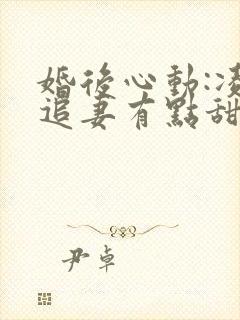 婚後心動:
追妻有點甜
尹卓